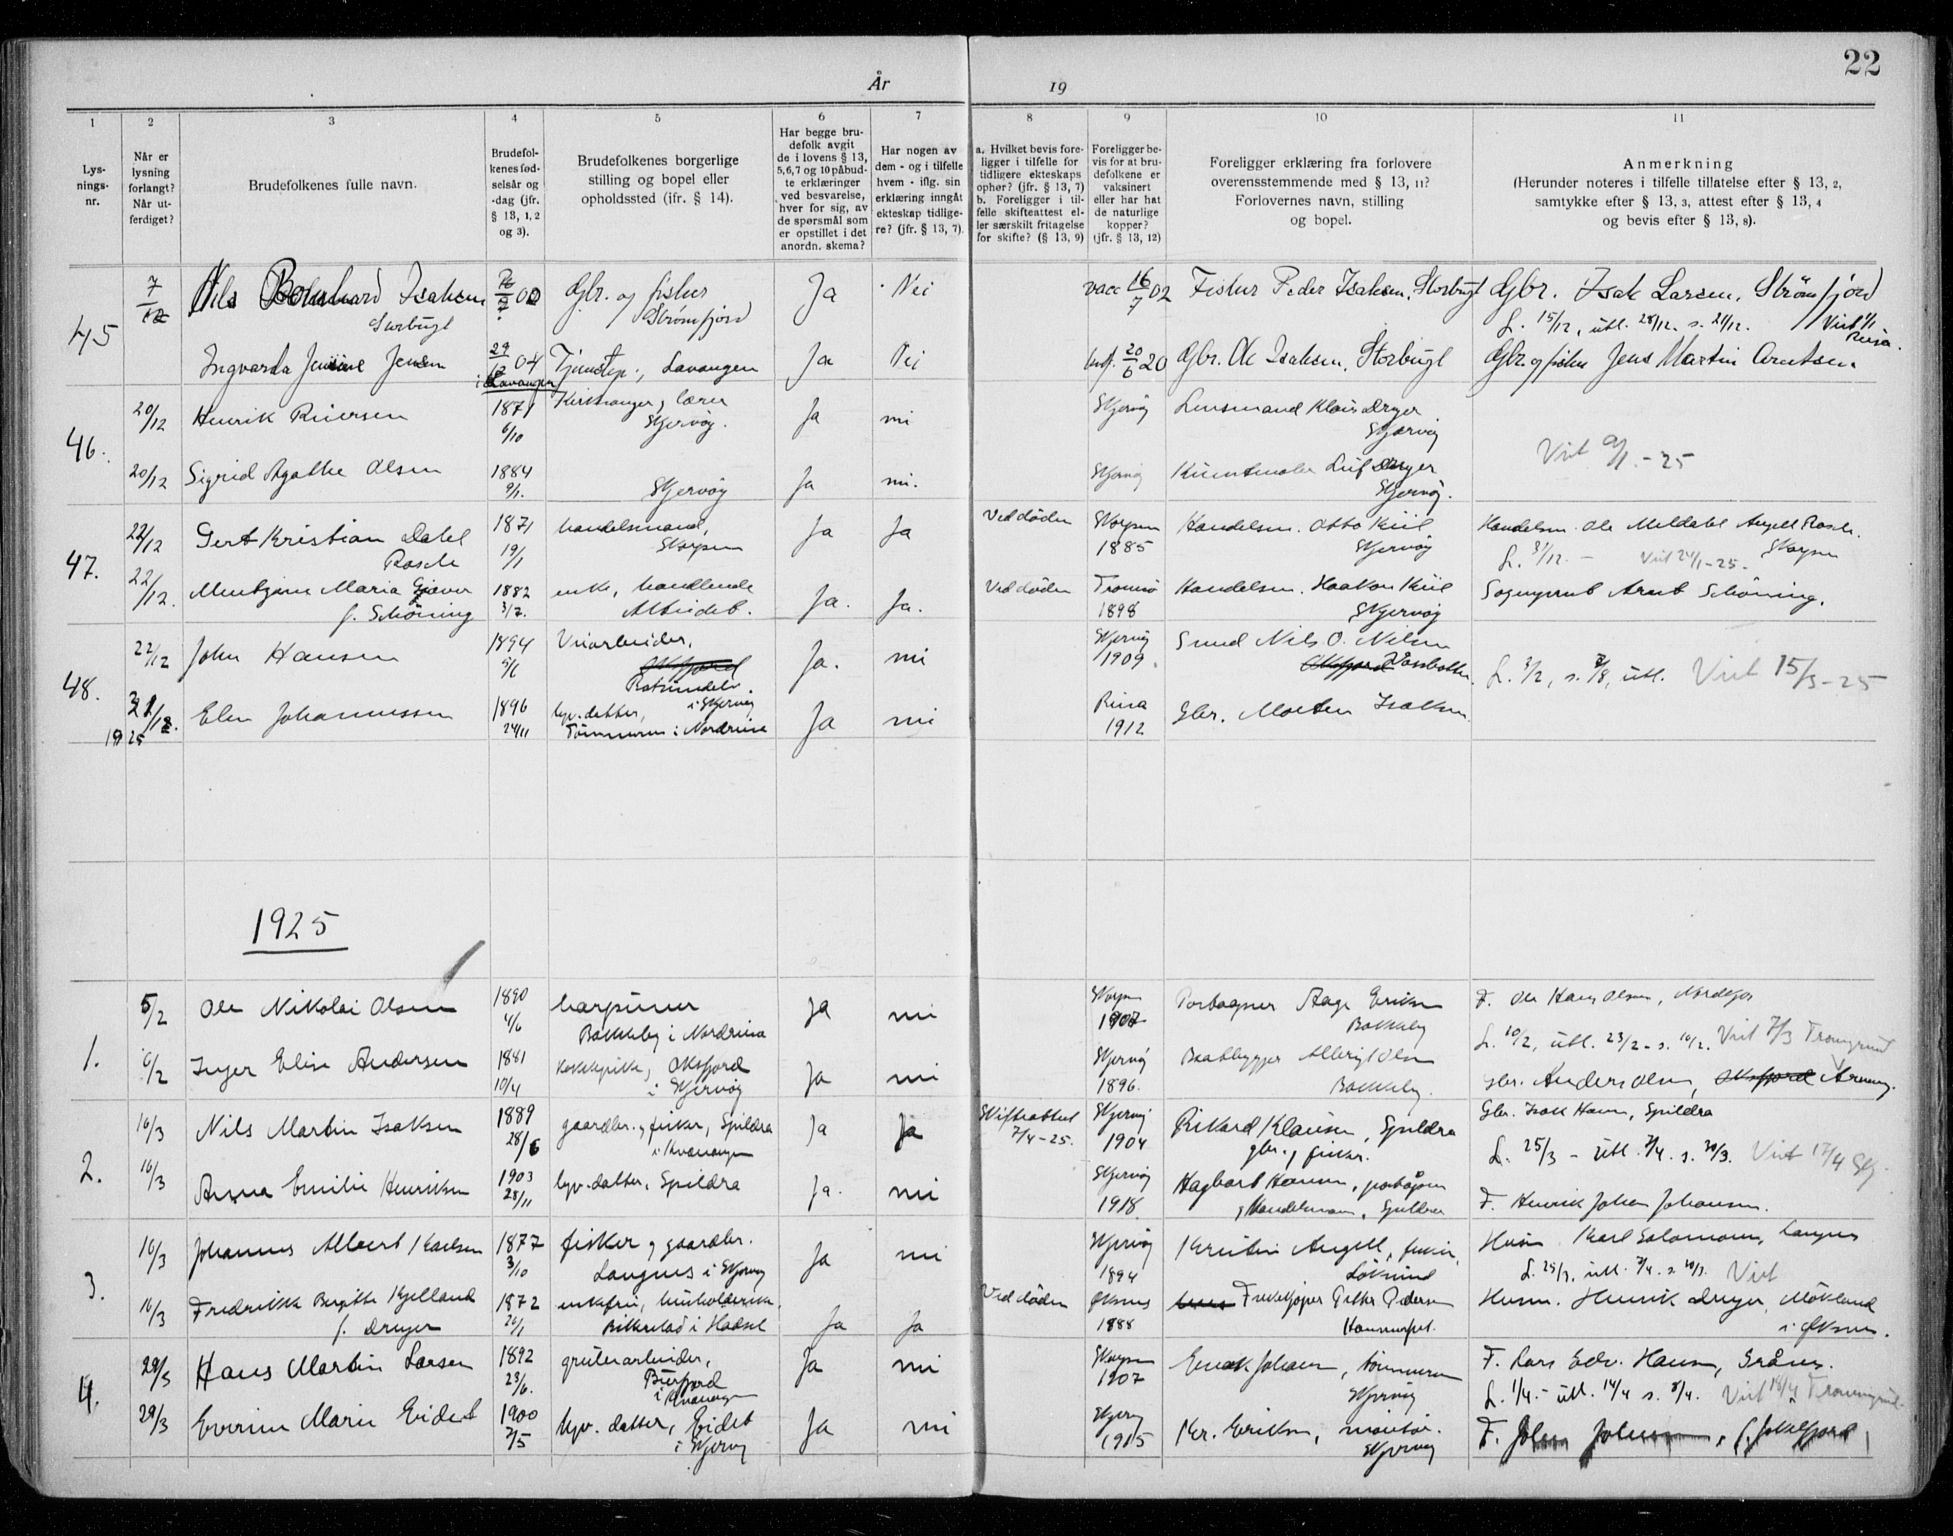 22
År
19
1
2
3
4
5
6
7
8
9
10
11
Lys-
nings-
nr.
Når er
lysning
forlangt?
Når ut-
ferdiget?
Brudefolkenes fulle navn.
Brudefol-
kenes fød-
selsår og
-dag (jfr.
§ 13, 1, 2
og 3).
Brudefolkenes borgerlige
stilling og bopel eller
opholdssted (ifr. § 14).
Har begge bru-
defolk avgit
de i lovens § 13,
5, 6, 7 og 10 påbud-
te erklæringer
ved besvarelse,
hver for sig, av
de spørsmål som
er opstillet i det
anordn. skema?
Har nogen av
dem - og i tilfelle
hvem - iflg. sin
erklæring inngåt
ekteskap tidlige-
re? (jfr. § 13, 7).
a. Hvilket bevis fore-
ligger i tilfelle for
tidligere ekteskaps
ophør? (jfr. § 13, 7)
b. Foreligger i til-
felle skifteattest el-
ler særskilt fritagelse
for skifte? (§ 13, 9)
Foreligger be-
vis for at bru-
defolkene er
vaksinert
eller har hat
de naturlige
kopper?
(jfr. § 13, 12)
Foreligger erklæring fra forlovere
overensstemmende med § 13, 11?
Forlovernes navn, stilling
og bopel.
Anmerkning
(Herunder noteres i tilfelle tillatelse efter § 13, 2,
samtykke efter § 13, 3, attest efter § 13, 4
og bevis efter § 13, 8).
45
7/12 Nils Bernhard Isaksen 00 Gbr. og fisker Ja Nei vacc 16/7 02 Fisker Peder Isaksen, Storbugt Gbr. Isak Larsen, Strømfjord
Storbugt Strømfjord L. 15/12, utl. 28/12. s. 21/12.
Ingvarda Jensine Jensen 29/12 04 Tjenestep., Lavangen Ja Nei 20/6 20 Gbr. Ole Isaksen, Storbugt Gbr. og fisker Jens Martin Arntsen.
i Lavangen
46.
20/12 Henrik Reiersen 1871 Kirkesanger, lærer Ja nei Skjervøy Lensmand Klaus Dreyer
6/10 Skjervøy. Skjervøy
Viet 9/1.-25
20/12 Sigrid Agathe Olsen 1884 Ja nei. Skjervøy Leif Dreyer
9/1. Skjervøy Skjervøy.
47.
22/12 Gert Kristian Dahl 1871 handelsmand, Ja Ja Ved døden Skorpen Handelsm. Otto Kiil Handelsm. Ole Meldahl Angell Rasch.
Rasch 19/1 Skorpen 1885 Skjervøy Skorpen
L. 31/12.- Viet 24/1-25.
22/12. Maria Giæver 1882 enke, handlende Ja. Ja. Ved døden Tromsø Handelsm. Haakon Kiil Sogneprest Arnt Schöning.
f. Schöning 3/7. Alteidet. 1898 Skjervøy
48.
22/12 John Hansen 1894 Veiarbeider, Ja. nei Skjervøy Smed Nils O. Nilsen
5/6 Oksfjord 1909. Oksfjord Vassbotten
Rotsundelv.
i Skjervøy
L. 3/2, s. 7/8, utl. Viet 15/3-25
Elen Johannessen 1896 gbr. datter, Ja nei 1912 Gbr. Morten Isaksen.
24/11 i Nordreisa
1925
1925
1.
5/2 Ole Nikolai Olsen 1890 harpuner Ja nei Skorpen Postaapner Aage Eriksen F. Ole Hans Olsen,
4/6 Bakkeby i Nordreisa 1907 Bakkeby
L. 10/2, utl. 23/2- s. 16/2. Viet 7/3 Tromsøsund
6/2 Inger Elise Andersen 1881 kokkepike, Oksfjord Ja nei Skjervøy Baatbygger Albrigt Olsen Gbr. Anders Olsen, Oksfjord
10/4 i Skjervøy 1896. Bakkeby.
2.
16/3 Nils Martin Isaksen 1889 gaardbr., fisker, Spildra Ja Ja Skifteattest Skjervøy Rikard Klausen, Spildra Gbr. Isak Hansen, Spildra
28/6 i Kvænangen 7/4-25. 1904 gbr., fisker. L. 25/3 - utl. 7/4. s. 30/3. Viet 17/4 Skj.
16/3 Anna Emilie Henriksen 1903 gbr. datter, Spildra Ja. nei Skjervøy Hagbart Hansen,
28/11 1918. Handelsmann, Spildra F. Henrik Johan Johansen.
3.
16/3 Johannes Albert Karlsen 1877 fisker og gaardbr. Ja nei Skjervøy Kristian Angell, fisker, Husm. Karl Salomonsen, Laugnes
3/10 Laugnes i Skjervøy 1894 L. 25/3, utl. 7/4. s. 30/3. Viet
16/3 Fredrikke Birgitte Kjelland 1872 enkefru, husholderske. Ja Ja Ved døden Øksnes Fiskekjøper Peder Pedersen Husm. Henrik Dreyer,
f. Dreyer 26/1 i Hadsel 1888 Hammerfest. i Øksnes.
4.
29/3 Hans Martin Larsen 1892 grubearbeider, Ja nei Skorpen Enok Johansen, tømmerm. F. Lars Edv. Hansen,
23/6. Burfjord 1907 Skjervøy L. 1/4.- utl. 14/4 s. 8/4. Viet 18/4 Tromsøsund.
i Kvænangen
29/3 Marie Eidet 1900 gbr. datter, Eidet Ja nei Skjervøy Kr. Eriksen, montør. F.
2/5 i Skjervøy 1915 Skjervøy